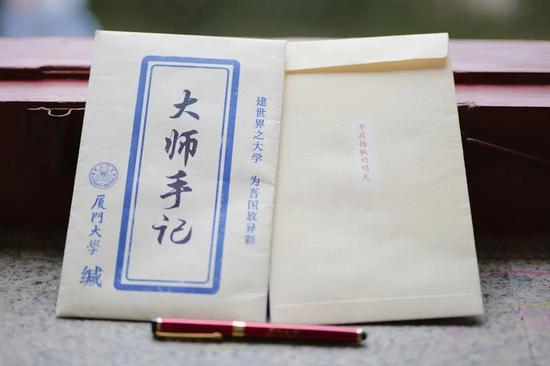 大师手记
建世界之大学 为吾国放异彩
厦门大學 缄
开启扬帆的明天